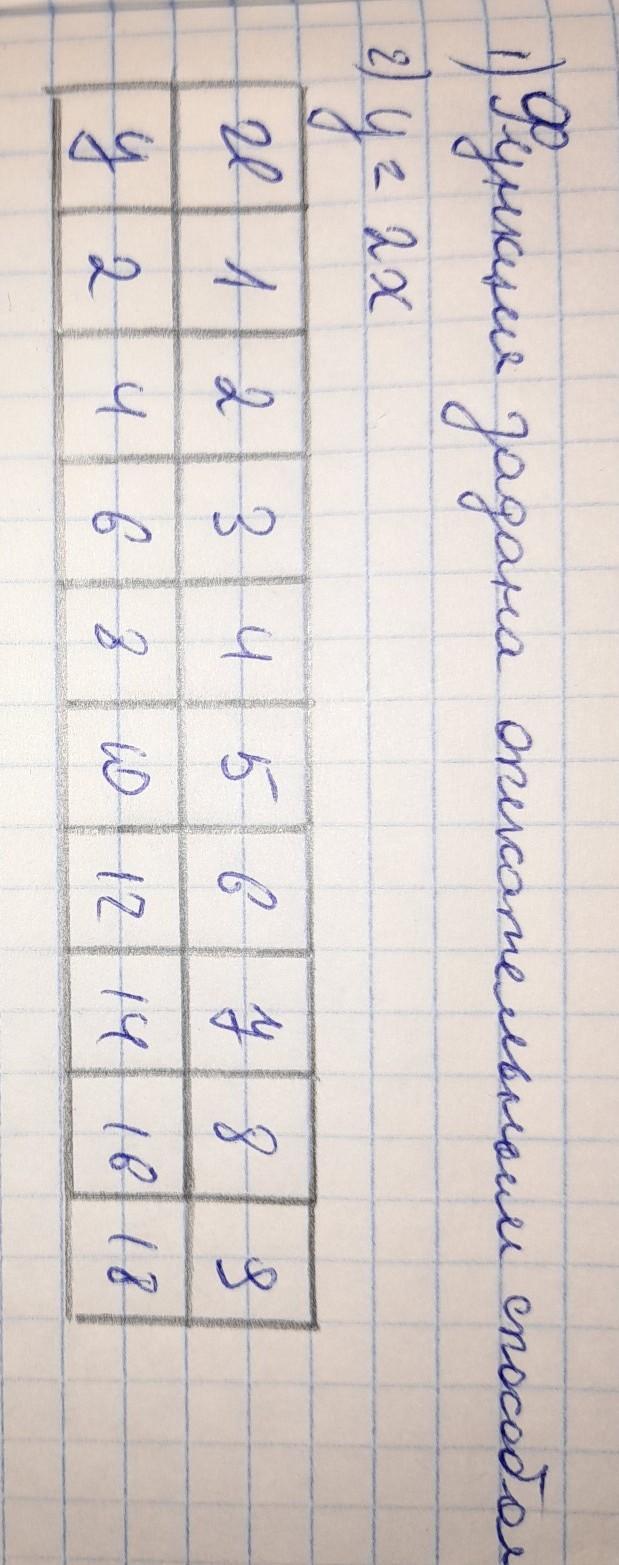 1) Функция задана описательным способом
2) y = 2x
x 1 2 3 4 5 6 7 8 9
y 2 4 6 8 10 12 14 16 18